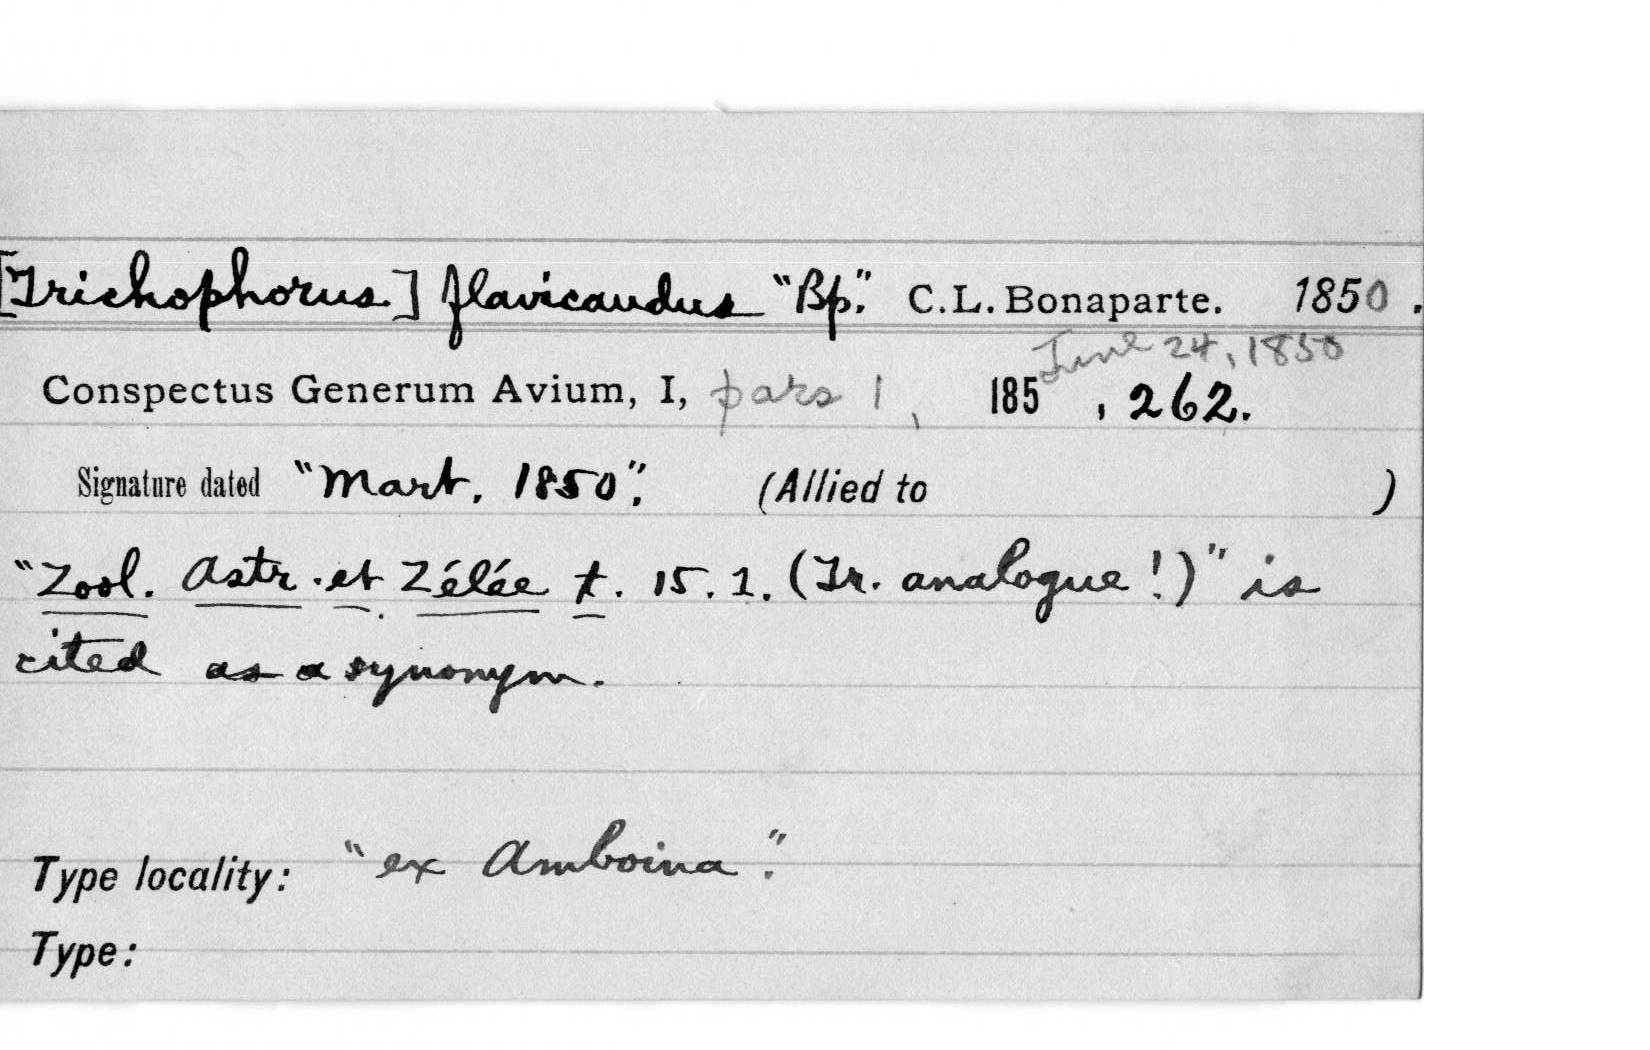 [Trichophorus] flavicaudus "Bp." C.L. Bonaparte. 1850.
June 24, 1850
Conspectus Generum Avium, I, pars 1, 185 , 262.
Signature dated "Mart. 1850". (Allied to )
"Zool. Astr. et Zélée t. 15. 1. (Tr. analogue!)" is
cited as a synonym.
Type locality: "ex Amboina".
Type: